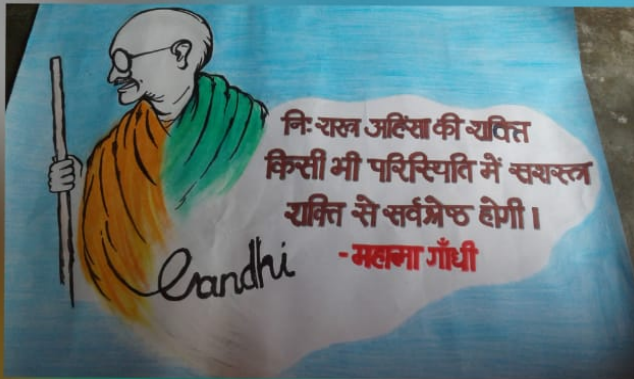 नि: शस्त्र अहिंसा की शक्ति
किसी भी परिस्थिति में सशस्त्र
शक्ति से सर्वश्रेष्ठ होगी।
-महात्मा गाँधी
Gandhi